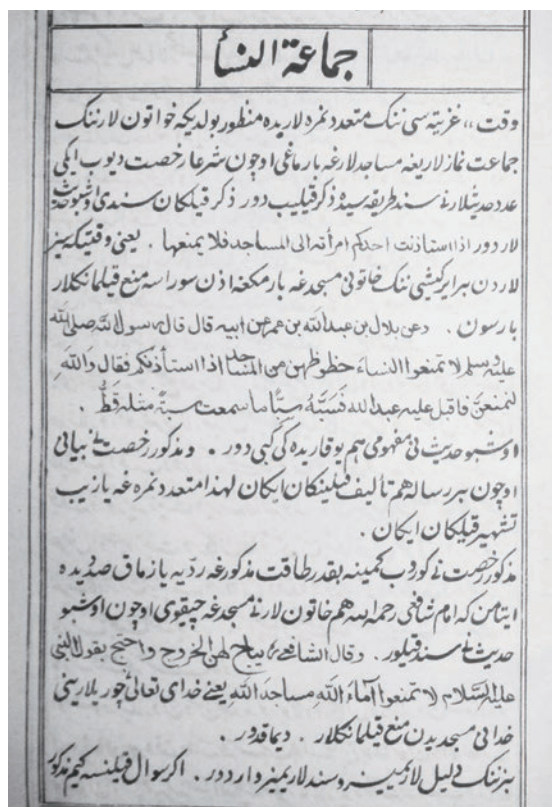 جماعة النسأ
وقت،، غزیته سی ننک متعدد نمره لاریده منظور بولدیکه خواتون لارننک
جماعت نماز لاریغه مساجد لارغه بارماغی اوچون شرعا رخصت دیوب ایکی
عدد حدیثلارنی سند طریقه سیده ذکر قیلیب دور ذکر قیلکان سندی اوشبو حدیث
لار دور اذا استاذنت احدکم امرأته الی المساجد فلا یمنعها . یعنی وقتیکه سیز
لاردن بر ایر کیشی ننک خاتونی مسجدغه بارمکغه اذن سوراسه منع قیلمانکلار
بارسون . وعن بلال بن عبدالله بن عمر عن ابیه قال قال رسول الله صلی الله
علیه وسلم لا تمنعوا النساء حظوظهن من المساجد اذا استأذنکم فقال والله
لنمنعن فاقبل علیه عبدالله فسبّه سبّا ما سمعت سبّه مثله قطّ .
اوشبو حدیث نی مفهومی هم یوقاریده کی کبی دور . و مذکور رخصت نی بیانی
اوچون بر رساله هم تألیف قیلینکان ایکان لهذا متعدد نمره غه یازیب
تشهیر قیلکان ایکان .
مذکور رخصت نی کوروب کمینه بقدر طاقت مذکورغه ردیه یازماق صددیده
ایتامن که امام شافعی رحمه الله هم خاتون لارنی مسجدغه چیقوی اوچون اوشبو
حدیث نی سند قیلور . وقال الشافعی یباح لهن الخروج واحتج بقول النبی
علیه السلام لا تمنعوا اماء الله مساجد الله یعنی خدای تعالی چوریلارینی
خدانی مسجدیدن منع قیلمانکلار . دیماقدور .
بیزننک دلیل لاریمیز و سند لاریمیز واردور . اکر سوال قیلنسه کیم مذکور